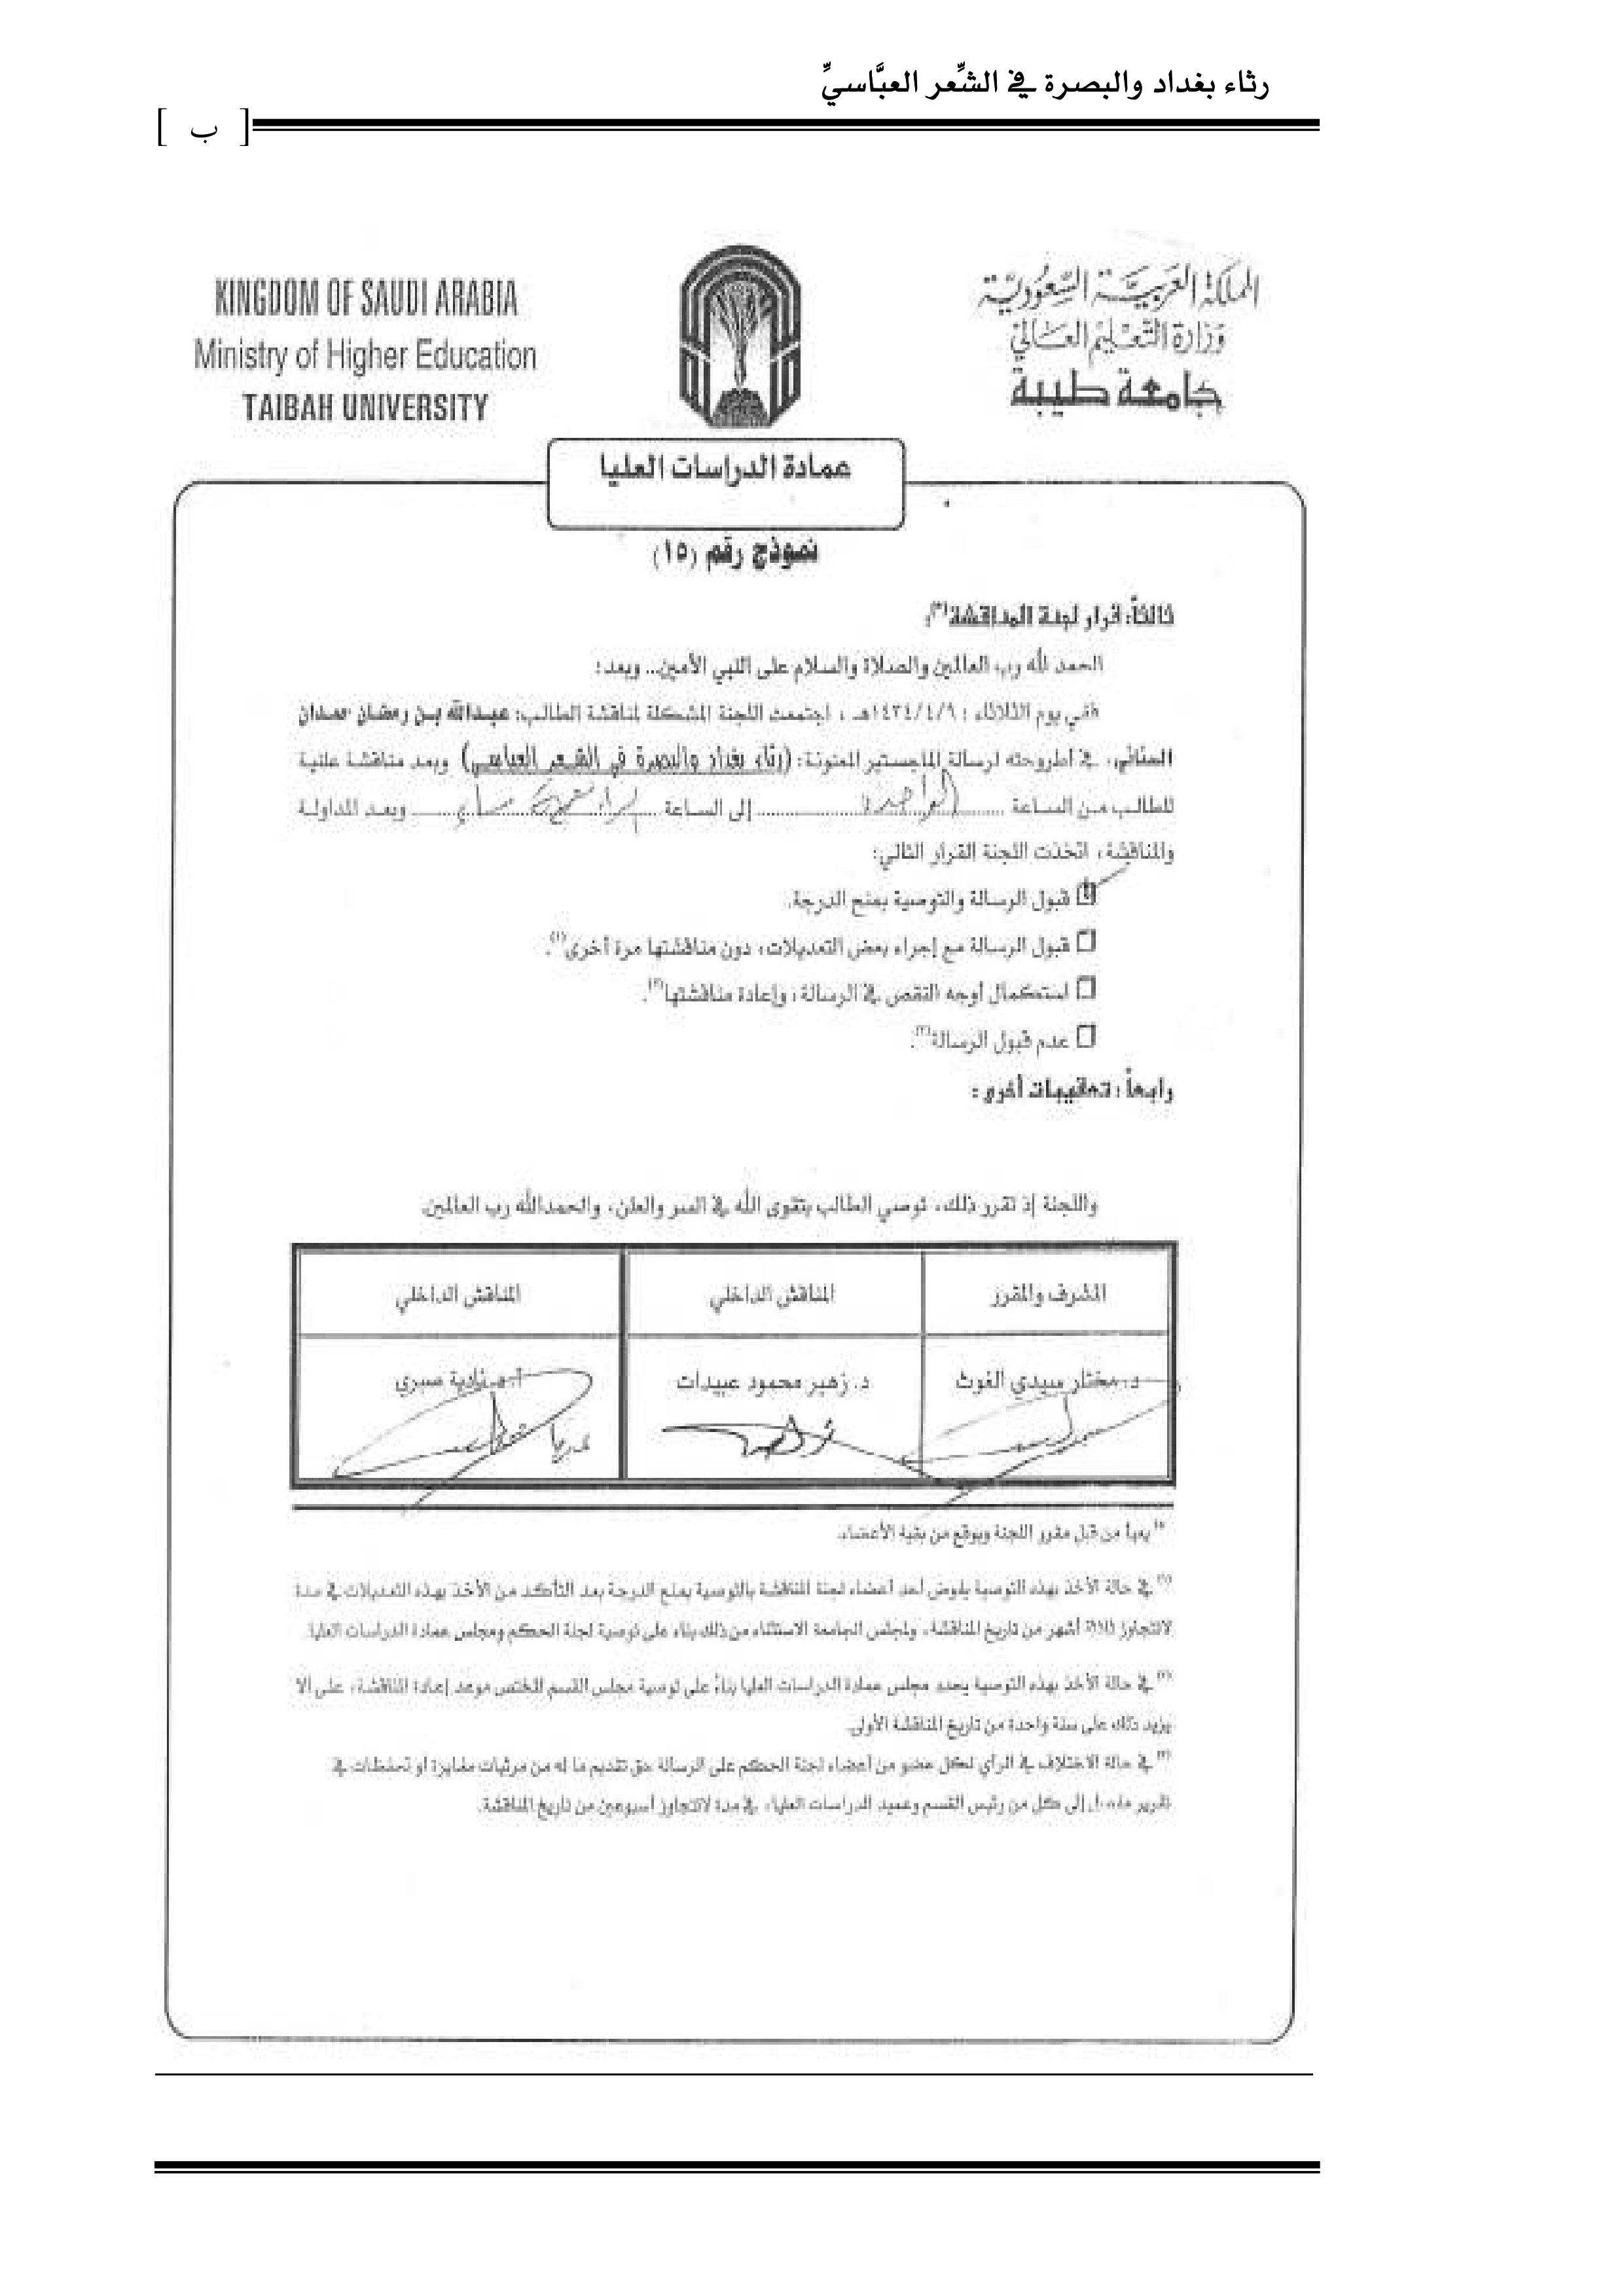 رثاء بغداد والبصرة في الشِّعر العبَّاسيِّ
[ ب ]
KINGDOM OF SAUDI ARABIA
Ministry of Higher Education
TAIBAH UNIVERSITY
المملكة العربية السعودية
وزارة التعليم العالي
جامعة طيبة
عمادة الدراسات العليا
نموذج رقم (١٥)
ثالثاً: قرار لجنة المناقشة(*):
الحمد لله رب العالمين والصلاة والسلام على النبي الأمين... وبعد:
ففي يوم الثلاثاء : ١٤٣٤/٤/٩هـ ، اجتمعت اللجنة المشكلة لمناقشة الطالب: عبدالله بن رمضان حمدان
في أطروحته لرسالة الماجستير المعنونة: (رثاء بغداد والبصرة في الشعر العباسي) وبعد مناقشة علنية
للطالب من الساعة الواحدة إلى الساعة وبعد المداولة
والمناقشة، اتخذت اللجنة القرار التالي:
قبول الرسالة والتوصية بمنح الدرجة.
قبول الرسالة مع إجراء بعض التعديلات، دون مناقشتها مرة أخرى(١).
استكمال أوجه النقص في الرسالة، وإعادة مناقشتها(٢).
عدم قبول الرسالة(٣).
رابعاً : تعقيبات أخرى :
واللجنة إذ تقرر ذلك، توصي الطالب بتقوى الله في السر والعلن، والحمدالله رب العالمين.
المشرف والمقرر المناقش الداخلي المناقش الداخلي
د. مختار سيدي الغوث د. زهير محمود عبيدات نادية صبري
* يعبأ من قبل مقرر اللجنة ويوقع من بقية الأعضاء.
(١) في حالة الأخذ بهذه التوصية يفوض أحد أعضاء لجنة المناقشة بالتوصية بمنح الدرجة بعد التأكد من الأخذ بهذه التعديلات في مدة
لاتتجاوز ثلاثة أشهر من تاريخ المناقشة، ولمجلس الجامعة الاستثناء من ذلك بناء على توصية لجنة الحكم ومجلس عمادة الدراسات العليا.
(٢) في حالة الأخذ بهذه التوصية يحدد مجلس عمادة الدراسات العليا بناءً على توصية مجلس القسم المختص موعد إعادة المناقشة، على ألا
يزيد ذلك على سنة واحدة من تاريخ المناقشة الأولى.
(٣) في حالة الاختلاف في الرأي لكل عضو من أعضاء لجنة الحكم على الرسالة حق تقديم ما له من مرئيات مغايرة أو تحفظات في
تقرير مفصل إلى كل من رئيس القسم وعميد الدراسات العليا، في مدة لاتتجاوز أسبوعين من تاريخ المناقشة.